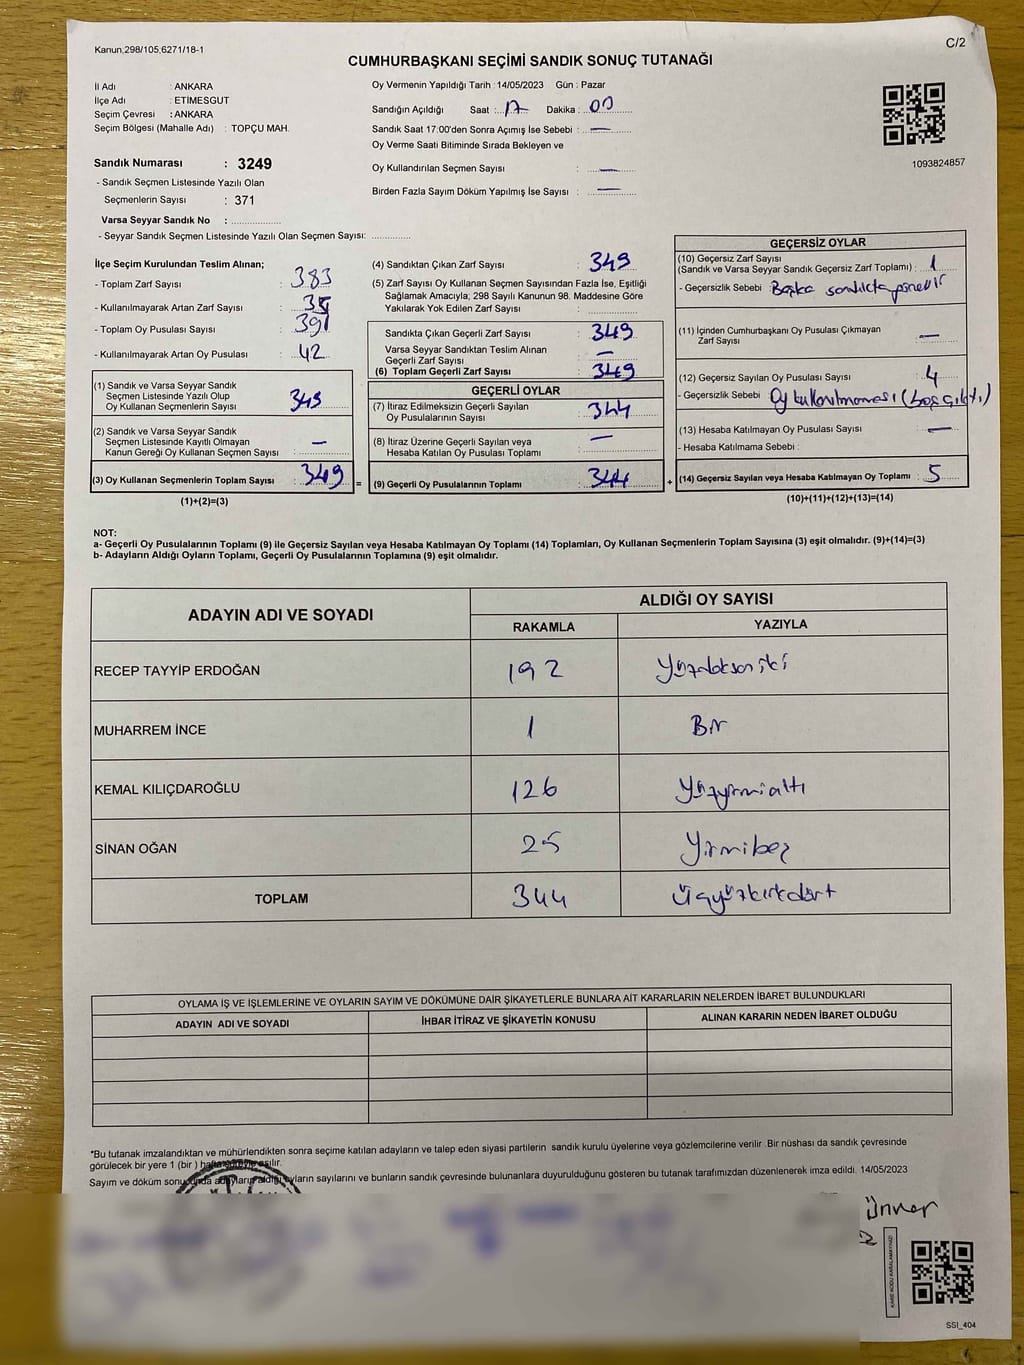 Kanun,298/105,6271/18-1
C/2
CUMHURBAŞKANI SEÇİMİ SANDIK SONUÇ TUTANAĞI
İl Adı : ANKARA
İlçe Adı : ETİMESGUT
Seçim Çevresi : ANKARA
Seçim Bölgesi (Mahalle Adı) : TOPÇU MAH.
Sandık Numarası : 3249
- Sandık Seçmen Listesinde Yazılı Olan
Seçmenlerin Sayısı : 371
Varsa Seyyar Sandık No : ................
- Seyyar Sandık Seçmen Listesinde Yazılı Olan Seçmen Sayısı: ............
Oy Vermenin Yapıldığı Tarih : 14/05/2023 Gün : Pazar
Sandığın Açıldığı Saat : 17 Dakika : 00
Sandık Saat 17:00'den Sonra Açımış İse Sebebi : —
Oy Verme Saati Bitiminde Sırada Bekleyen ve
Oy Kullandırılan Seçmen Sayısı : —
Birden Fazla Sayım Döküm Yapılmış İse Sayısı : —
1093824857
İlçe Seçim Kurulundan Teslim Alınan;
- Toplam Zarf Sayısı : 383
- Kullanılmayarak Artan Zarf Sayısı :
- Toplam Oy Pusulası Sayısı : 391
- Kullanılmayarak Artan Oy Pusulası : 42
(1) Sandık ve Varsa Seyyar Sandık
Seçmen Listesinde Yazılı Olup
Oy Kullanan Seçmenlerin Sayısı : 349
(2) Sandık ve Varsa Seyyar Sandık
Seçmen Listesinde Kayıtlı Olmayan
Kanun Gereği Oy Kullanan Seçmen Sayısı : —
(3) Oy Kullanan Seçmenlerin Toplam Sayısı : 349 =
(1)+(2)=(3)
(4) Sandıktan Çıkan Zarf Sayısı : 349
(5) Zarf Sayısı Oy Kullanan Seçmen Sayısından Fazla İse, Eşitliği
Sağlamak Amacıyla; 298 Sayılı Kanunun 98. Maddesine Göre
Yakılarak Yok Edilen Zarf Sayısı : ............
Sandıkta Çıkan Geçerli Zarf Sayısı : 349
Varsa Seyyar Sandıktan Teslim Alınan
Geçerli Zarf Sayısı : —
(6) Toplam Geçerli Zarf Sayısı : 349
GEÇERLİ OYLAR
(7) İtiraz Edilmeksizin Geçerli Sayılan
Oy Pusulalarının Sayısı : 344
(8) İtiraz Üzerine Geçerli Sayılan veya
Hesaba Katılan Oy Pusulası Toplamı : —
(9) Geçerli Oy Pusulalarının Toplamı : 344 +
GEÇERSİZ OYLAR
(10) Geçersiz Zarf Sayısı
(Sandık ve Varsa Seyyar Sandık Geçersiz Zarf Toplamı) : 1
- Geçersizlik Sebebi : Başka sandıkta
(11) İçinden Cumhurbaşkanı Oy Pusulası Çıkmayan
Zarf Sayısı : —
(12) Geçersiz Sayılan Oy Pusulası Sayısı : 4
- Geçersizlik Sebebi : Oy kullanılmaması (boş çıktı)
(13) Hesaba Katılmayan Oy Pusulası Sayısı : —
- Hesaba Katılmama Sebebi :
(14) Geçersiz Sayılan veya Hesaba Katılmayan Oy Toplamı : 5
(10)+(11)+(12)+(13)=(14)
NOT:
a- Geçerli Oy Pusulalarının Toplamı (9) ile Geçersiz Sayılan veya Hesaba Katılmayan Oy Toplamı (14) Toplamları, Oy Kullanan Seçmenlerin Toplam Sayısına (3) eşit olmalıdır. (9)+(14)=(3)
b- Adayların Aldığı Oyların Toplamı, Geçerli Oy Pusulalarının Toplamına (9) eşit olmalıdır.
ADAYIN ADI VE SOYADI
ALDIĞI OY SAYISI
RAKAMLA YAZIYLA
RECEP TAYYİP ERDOĞAN 192 Yüzdoksaniki
MUHARREM İNCE 1 Bir
KEMAL KILIÇDAROĞLU 126 Yüzyirmialtı
SİNAN OĞAN 25 Yirmibeş
TOPLAM 344 Üçyüzkırkdört
OYLAMA İŞ VE İŞLEMLERİNE VE OYLARIN SAYIM VE DÖKÜMÜNE DAİR ŞİKAYETLERLE BUNLARA AİT KARARLARIN NELERDEN İBARET BULUNDUKLARI
ADAYIN ADI VE SOYADI İHBAR İTİRAZ VE ŞİKAYETİN KONUSU ALINAN KARARIN NEDEN İBARET OLDUĞU
*Bu tutanak imzalandıktan ve mühürlendikten sonra seçime katılan adayların ve talep eden siyasi partilerin sandık kurulu üyelerine veya gözlemcilerine verilir. Bir nüshası da sandık çevresinde
görülecek bir yere 1 (bir ) hafta süreyle asılır.
Sayım ve döküm sonucunda adayların aldığı oyların sayılarını ve bunların sandık çevresinde bulunanlara duyurulduğunu gösteren bu tutanak tarafımızdan düzenlenerek imza edildi. 14/05/2023
Ünver
KARE KODU KARALAMAYINIZ!
SSI_404